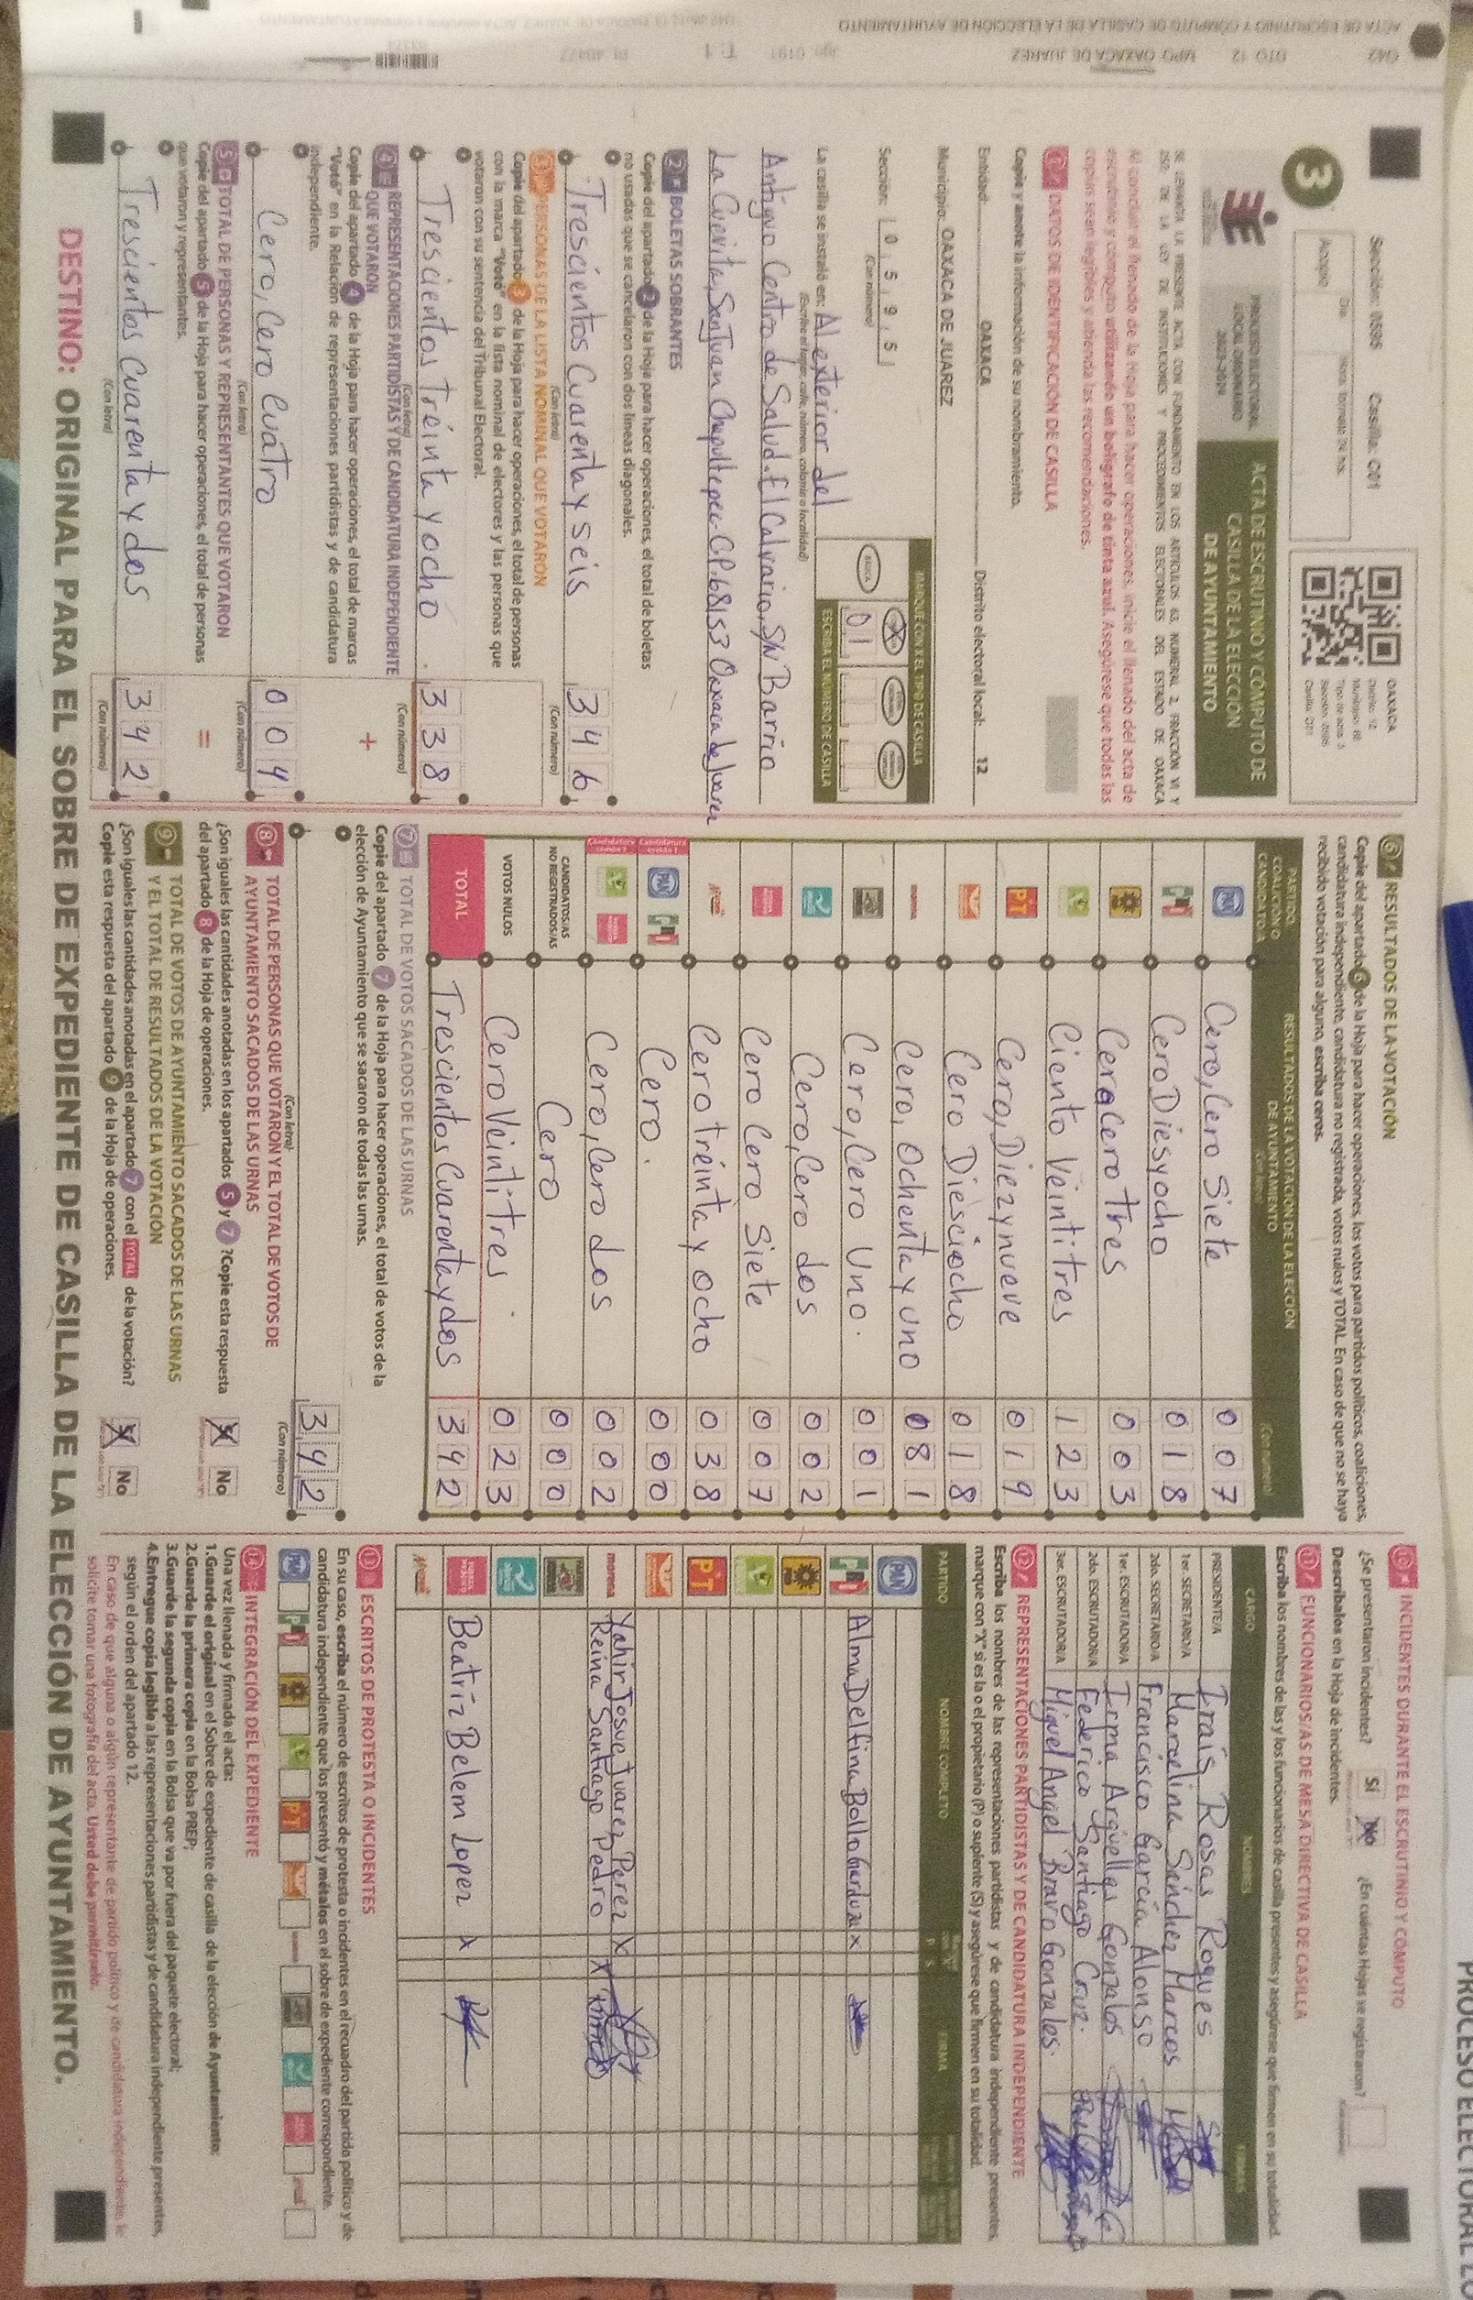 PROCESO ELECTORAL LO
Sección: 0595 Casilla: C01
3
PROCESO ELECTORAL
LOCAL ORDINARIO
2023-2024
ACTA DE ESCRUTINIO Y CÓMPUTO DE
CASILLA DE LA ELECCIÓN
DE AYUNTAMIENTO
OAXACA
SE LEVANTA LA PRESENTE ACTA CON FUNDAMENTO EN LOS ARTÍCULOS 63, NUMERAL 2, FRACCIÓN VI Y
DE LA LEY DE INSTITUCIONES Y PROCEDIMIENTOS ELECTORALES DEL ESTADO DE OAXACA
Al concluir el llenado de la Hoja para hacer operaciones, inicie el llenado del acta de
escrutinio y cómputo utilizando un bolígrafo de tinta azul. Asegúrese que todas las
copias sean legibles y atienda las recomendaciones.
1 DATOS DE IDENTIFICACIÓN DE CASILLA
Copie y anote la información de su nombramiento.
Entidad: OAXACA Distrito electoral local: 12
Municipio: OAXACA DE JUAREZ
Sección: 0 5 9 5
(Con número)
MARQUE CON X EL TIPO DE CASILLA
BÁSICA
01
ESCRIBA EL NÚMERO DE CASILLA
La casilla se instaló en: Al exterior del
(Escriba el lugar: calle, número, colonia o localidad)
Antiguo Centro de Salud. El Calvario, S/N Barrio
La Cuevita, San Juan Chapultepec. C.P. 68153 Oaxaca de Juarez
2 BOLETAS SOBRANTES
Copie del apartado 2 de la Hoja para hacer operaciones, el total de boletas
no usadas que se cancelaron con dos líneas diagonales.
Trescientos Cuarenta y seis 346
(Con letra) (Con número)
3 PERSONAS DE LA LISTA NOMINAL QUE VOTARON
Copie del apartado 3 de la Hoja para hacer operaciones, el total de personas
con la marca "Votó" en la lista nominal de electores y las personas que
votaron con su sentencia del Tribunal Electoral.
Trescientos Treinta y ocho 338
(Con letra) (Con número)
4 REPRESENTACIONES PARTIDISTAS Y DE CANDIDATURA INDEPENDIENTE
QUE VOTARON
+
Copie del apartado 4 de la Hoja para hacer operaciones, el total de marcas
"Votó" en la Relación de representaciones partidistas y de candidatura
independiente.
Cero, Cero Cuatro 004
(Con letra) (Con número)
5 TOTAL DE PERSONAS Y REPRESENTANTES QUE VOTARON
=
Copie del apartado 5 de la Hoja para hacer operaciones, el total de personas
que votaron y representantes.
Trescientos Cuarenta y dos 342
(Con letra) (Con número)
6 RESULTADOS DE LA VOTACIÓN
Copie del apartado 6 de la Hoja para hacer operaciones, los votos para partidos políticos, coaliciones,
candidatura independiente, candidatura no registrada, votos nulos y TOTAL. En caso de que no se haya
recibido votación para alguno, escriba ceros.
PARTIDO, COALICIÓN O CANDIDATO/A RESULTADOS DE LA VOTACIÓN DE LA ELECCIÓN
DE AYUNTAMIENTO
(Con letra) (Con número)
PAN Cero, Cero Siete 007
PRI Cero Diesyocho 018
Cero Cero tres 003
Ciento Veintitres 123
PT Cero, Diezynueve 019
Cero Diesciocho 018
morena Cero, Ochenta y uno 081
Cero, Cero Uno. 001
Cero, Cero dos 002
Cero Cero Siete 007
Cero treinta y ocho 038
PAN PRI Cero. 000
Cero, Cero dos 002
CANDIDATOS/AS
NO REGISTRADOS/AS Cero 000
VOTOS NULOS Cero Veintitres. 023
TOTAL Trescientos Cuarenta y dos 342
7 TOTAL DE VOTOS SACADOS DE LAS URNAS
Copie del apartado 7 de la Hoja para hacer operaciones, el total de votos de la
elección de Ayuntamiento que se sacaron de todas las urnas.
342
(Con letra) (Con número)
8 TOTAL DE PERSONAS QUE VOTARON Y EL TOTAL DE VOTOS DE
AYUNTAMIENTO SACADOS DE LAS URNAS
¿Son iguales las cantidades anotadas en los apartados 5 y 7 ? Copie esta respuesta
del apartado 8 de la Hoja de operaciones.
Sí No
9 TOTAL DE VOTOS DE AYUNTAMIENTO SACADOS DE LAS URNAS
Y EL TOTAL DE RESULTADOS DE LA VOTACIÓN
¿Son iguales las cantidades anotadas en el apartado 7 con el TOTAL de la votación?
Copie esta respuesta del apartado 9 de la Hoja de operaciones.
Sí No
10 INCIDENTES DURANTE EL ESCRUTINIO Y CÓMPUTO
¿Se presentaron incidentes? Sí No ¿En cuántas Hojas se registraron?
Descríbalos en la Hoja de incidentes.
11 FUNCIONARIOS/AS DE MESA DIRECTIVA DE CASILLA
Escriba los nombres de las y los funcionarios de casilla presentes y asegúrese que firmen en su totalidad.
CARGO NOMBRES FIRMAS
PRESIDENTE/A Irais Rosas Roques
1er. SECRETARIO/A Marcelina Sánchez Marcos
2do. SECRETARIO/A Francisco García Alonso
1er. ESCRUTADOR/A Irma Arguelles Gonzalos
2do. ESCRUTADOR/A Federico Santiago Cruz.
3er. ESCRUTADOR/A Miguel Angel Bravo Gonzales.
12 REPRESENTACIONES PARTIDISTAS Y DE CANDIDATURA INDEPENDIENTE
Escriba los nombres de las representaciones partidistas y de candidatura independiente presentes,
marque con "X" si es la o el propietario (P) o suplente (S) y asegúrese que firmen en su totalidad.
PARTIDO NOMBRE COMPLETO P S FIRMA
PAN
PRI Alma Delfina x
PT
morena Yahir Josue Juarez Perez X
Reina Santiago Pedro X
Beatriz Belem Lopez X
13 ESCRITOS DE PROTESTA O INCIDENTES
En su caso, escriba el número de escritos de protesta o incidentes en el recuadro del partido político y de
candidatura independiente que los presentó y métalos en el sobre de expediente correspondiente.
14 INTEGRACIÓN DEL EXPEDIENTE
Una vez llenada y firmada el acta:
1.Guarde el original en el Sobre de expediente de casilla de la elección de Ayuntamiento;
2.Guarde la primera copia en la Bolsa PREP;
3.Guarde la segunda copia en la Bolsa que va por fuera del paquete electoral;
4.Entregue copia legible a las representaciones partidistas y de candidatura independiente presentes,
según el orden del apartado 12.
En caso de que alguna o algún representante de partido político y de candidatura independiente, le
solicite tomar una fotografía del acta. Usted debe permitírselo.
DESTINO: ORIGINAL PARA EL SOBRE DE EXPEDIENTE DE CASILLA DE LA ELECCIÓN DE AYUNTAMIENTO.
042 DTO 12 MPO OAXACA DE JUAREZ
ACTA DE ESCRUTINIO Y CÓMPUTO DE CASILLA DE LA ELECCIÓN DE AYUNTAMIENTO